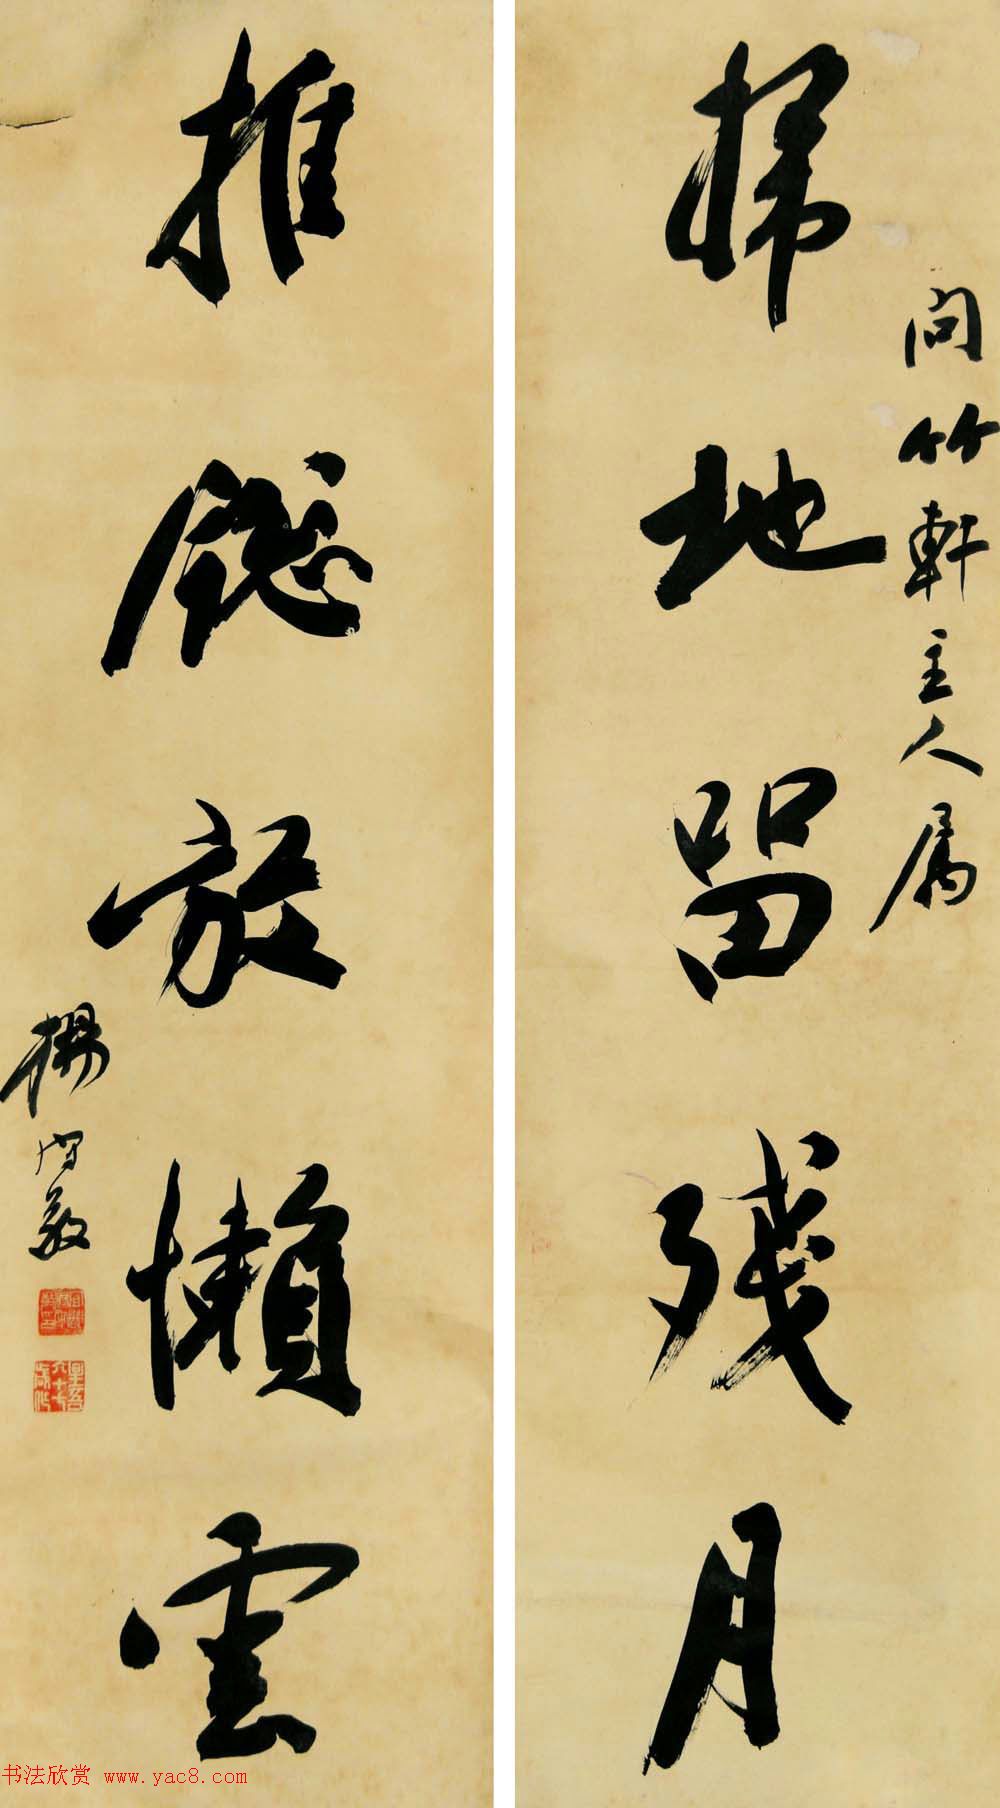 問竹軒主人属
掃地留殘月
推窗放懶雲
楊守敬
書法欣賞 www.yac8.com